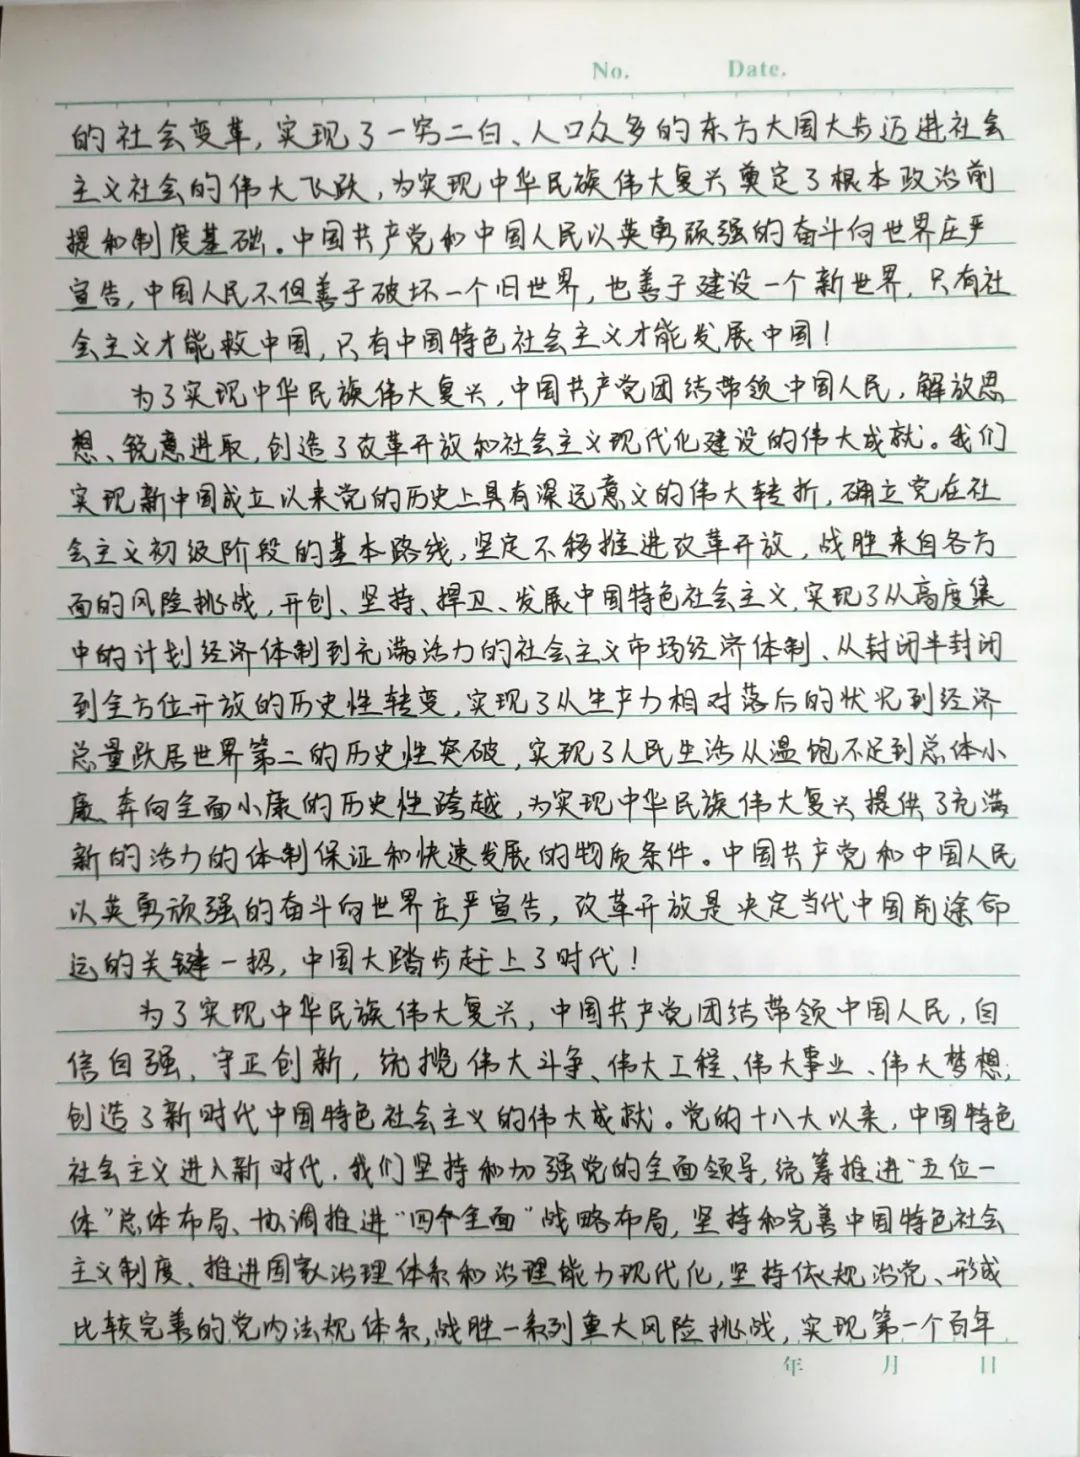 No. Date.
的社会变革,实现了一穷二白、人口众多的东方大国大步迈进社会
主义社会的伟大飞跃,为实现中华民族伟大复兴奠定了根本政治前
提和制度基础。中国共产党和中国人民以英勇顽强的奋斗向世界庄严
宣告,中国人民不但善于破坏一个旧世界,也善于建设一个新世界,只有社
会主义才能救中国,只有中国特色社会主义才能发展中国!
为了实现中华民族伟大复兴,中国共产党团结带领中国人民,解放思
想、锐意进取,创造了改革开放和社会主义现代化建设的伟大成就。我们
实现新中国成立以来党的历史上具有深远意义的伟大转折,确立党在社
会主义初级阶段的基本路线,坚定不移推进改革开放,战胜来自各方
面的风险挑战,开创、坚持、捍卫、发展中国特色社会主义,实现了从高度集
中的计划经济体制到充满活力的社会主义市场经济体制、从封闭半封闭
到全方位开放的历史性转变,实现了从生产力相对落后的状况到经济
总量跃居世界第二的历史性突破,实现了人民生活从温饱不足到总体小
康、奔向全面小康的历史性跨越,为实现中华民族伟大复兴提供了充满
新的活力的体制保证和快速发展的物质条件。中国共产党和中国人民
以英勇顽强的奋斗向世界庄严宣告,改革开放是决定当代中国前途命
运的关键一招,中国大踏步赶上了时代!
为了实现中华民族伟大复兴,中国共产党团结带领中国人民,自
信自强、守正创新,统揽伟大斗争、伟大工程、伟大事业、伟大梦想,
创造了新时代中国特色社会主义的伟大成就。党的十八大以来,中国特色
社会主义进入新时代,我们坚持和加强党的全面领导,统筹推进“五位一
体”总体布局、协调推进“四个全面”战略布局,坚持和完善中国特色社会
主义制度、推进国家治理体系和治理能力现代化,坚持依规治党、形成
比较完善的党内法规体系,战胜一系列重大风险挑战,实现第一个百年
年 月 日